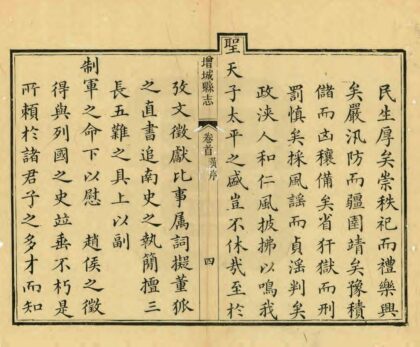 民生厚矣崇秩祀而禮樂興
矣嚴汛防而疆圉靖矣豫積
儲而凶穰備矣省犴獄而刑
罰慎矣採風謠而貞淫判矣
政浹人和仁風披拂以鳴我
聖天子太平之盛豈不休哉至於
增城縣志
卷首
序
四
攷文徵獻比事属詞擬董狐
之直書追南史之執簡擅三
長五難之具上以副
制軍之命下以慰 趙侯之徵
得與列國之史竝垂不朽是
所賴於諸君子之多才而知